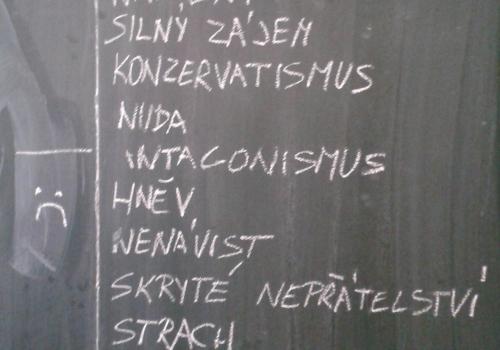 SILNÝ ZÁJEM
KONZERVATISMUS
NUDA
INTAGONISMUS
HNĚV
NENÁVIST
SKRYTÉ NEPŘÁTELSTVÍ
STRACH